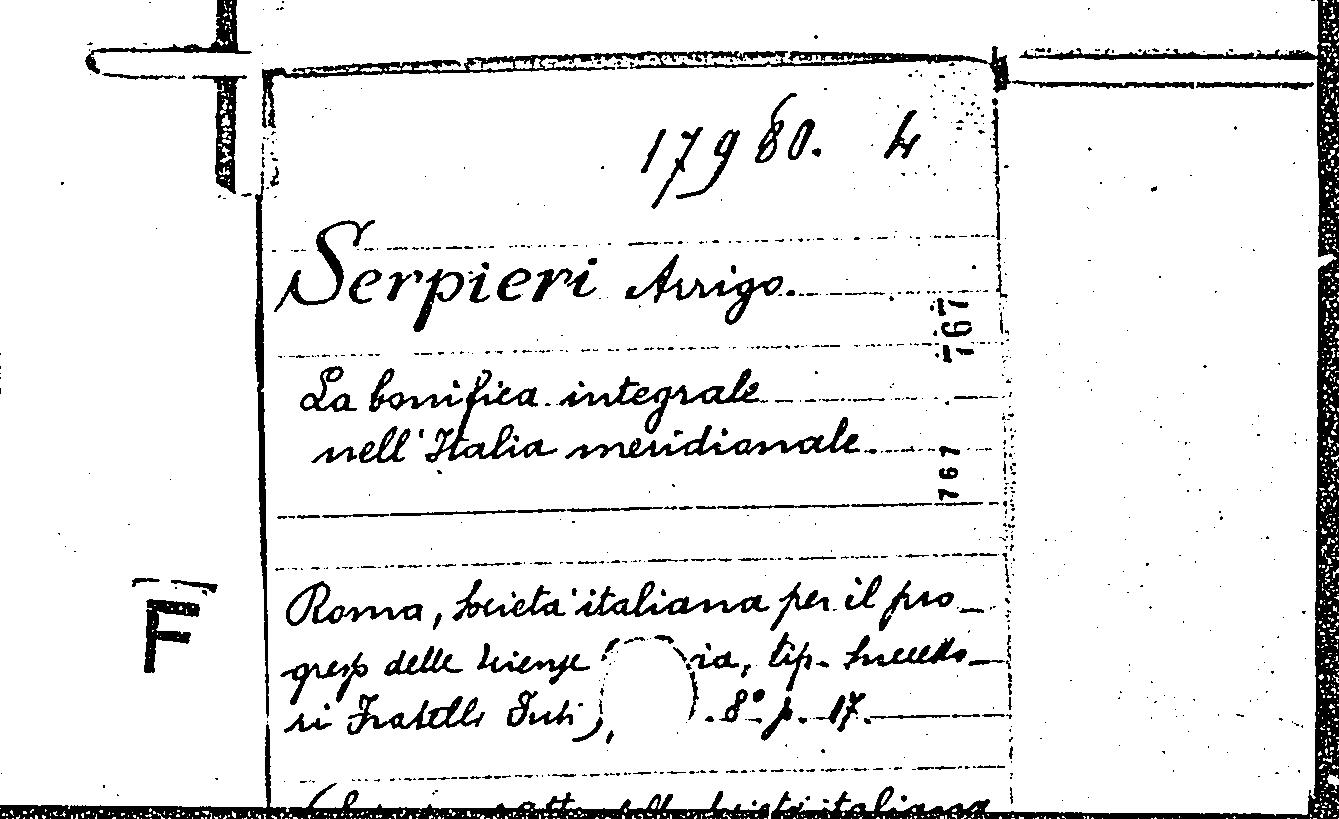 17980. 4
Serpieri Arrigo.
767
La bonifica integrale
nell'Italia meridionale.
767
Roma, Società italiana per il pro_
F
gresso delle scienze tip. Successo_
ri Fratelli Fusi, 8° p. 17.
società italiana